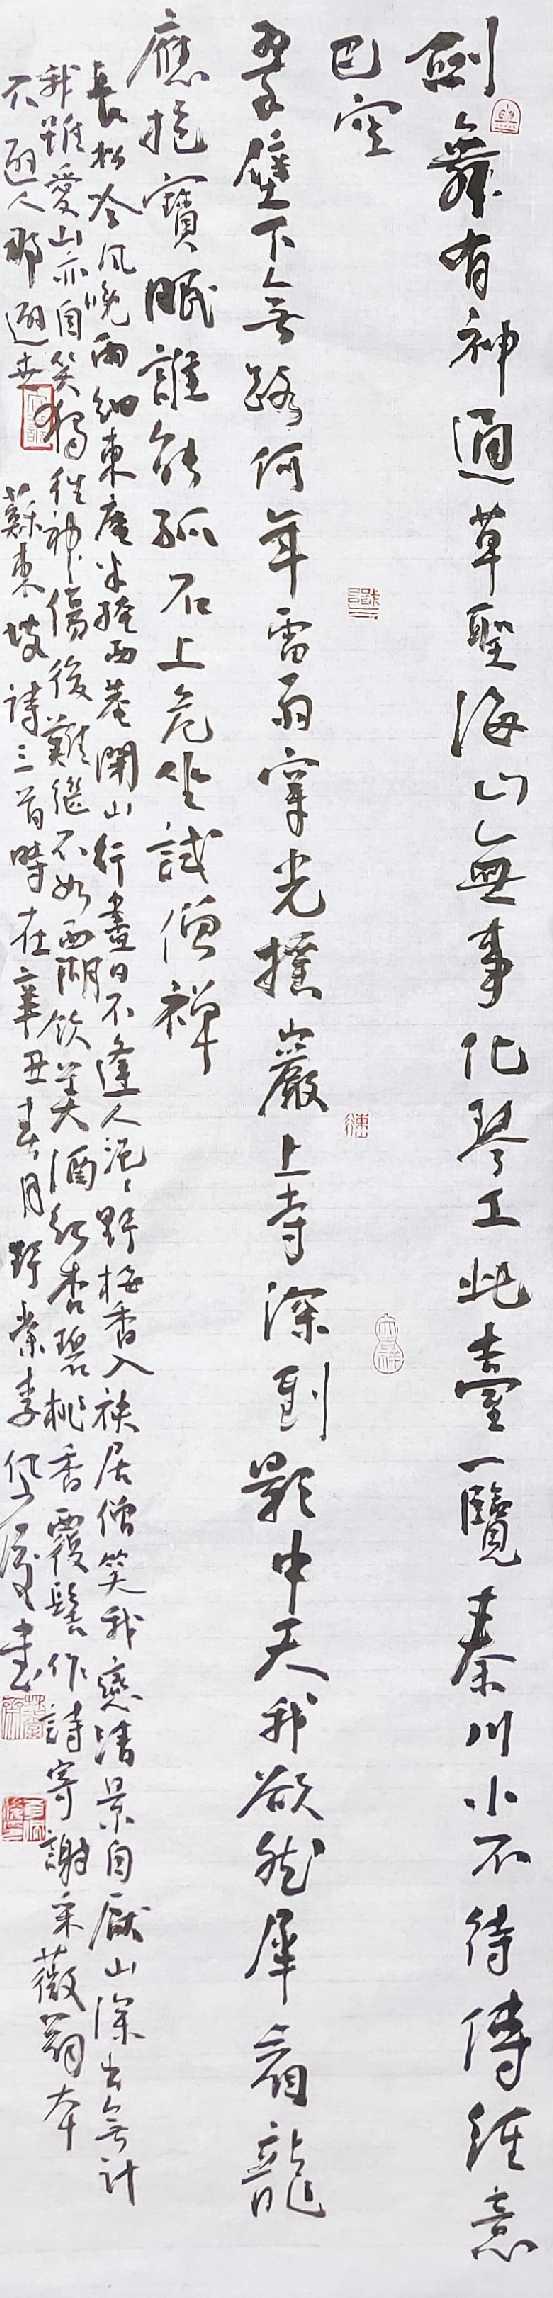 劍舞有神通草聖海山無事化琴工此臺一覽秦川小不待傳經意
已空
翠壁下無路何年雷雨穿光搖巖上寺深到影中天我欲然犀看龍
應抱寶眠誰能孤石上危坐試僧禪
長松吟風晚雨細東庵半掩西菴閉山行盡日不逢人浥〻野梅香入袂居僧笑我戀清景自厭山深出無計
我雖愛山亦自笑獨往神傷後難繼不如西湖飲美酒紅杏碧桃香覆髻作詩寄謝采薇翁本
不避人那避世 蘇東坡詩三首時在辛丑春月野 李 書